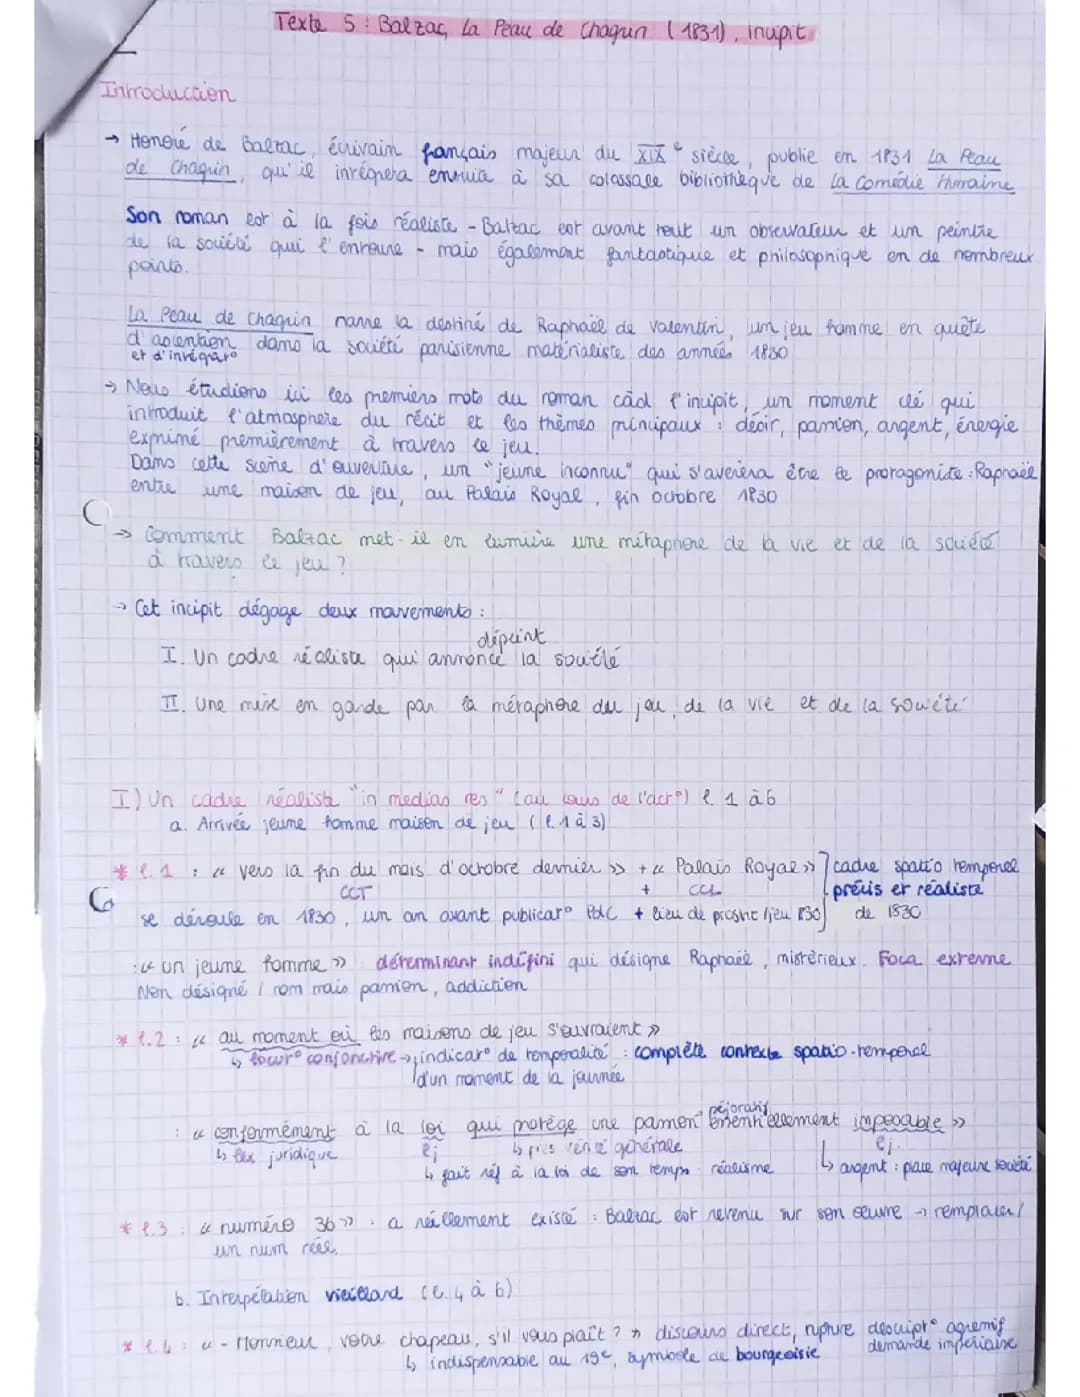 Texte 5 : Balzac, La Peau de Chagrin (1831), incipit
Introduction
→ Honoré de Balzac, écrivain français majeur du XIXe siècle, publie en 1831 La Peau
de Chagrin, qu'il intégrera ensuite à sa colossale bibliothèque de La Comédie Humaine
Son roman est à la fois réaliste - Balzac est avant tout un observateur et un peintre
de la société qui l'entoure - mais également fantastique et philosophique en de nombreux
points.
La Peau de Chagrin narre la destiné de Raphaël de Valentin, un jeu homme en quête
d'asention dans la société parisienne matérialiste des années 1830
et d'intégrat°
→ Nous étudions ici les premiers mots du roman càd l'incipit, un moment clé qui
introduit l'atmosphère du récit et les thèmes principaux : désir, passion, argent, énergie
exprimé premièrement à travers le jeu.
Dans cette scène d'ouverture, un "jeune inconnu" qui s'avèrera être le protagoniste : Raphaël
entre une maison de jeu, au Palais Royal, fin octobre 1830
→ Comment Balzac met-il en lumière une métaphore de la vie et de la société
à travers le jeu ?
→ Cet incipit dégage deux mouvements :
dépeint
I. Un cadre réaliste qui annonce la société
II. Une mise en garde par la métaphore du jeu, de la vie et de la société
I) Un cadre réaliste "in medias res" (au cours de l'act°) l. 1 à 6
a. Arrivée jeune homme maison de jeu (l. 1 à 3)
* l. 1 : « vers la fin du mois d'octobre dernier » + « Palais Royal » cadre spatio temporel
CCT + CCL précis et réaliste
se déroule en 1830, un an avant publicat° PdC + lieu de prostit°/jeu 1830 de 1830
: « un jeune homme » déterminant indéfini qui désigne Raphaël, mistérieux. Foca externe
Non désigné / nom mais passion, addiction
* l. 2 : « au moment où les maisons de jeu s'ouvraient »
↳ locut° conjonctive → indicat° de temporalité : complète contexte spatio-temporel
d'un moment de la journée
péjoratif
: « conformément à la loi qui protège une passion essentiellement imposable »
↳ lex juridique ↳ prés vérité générale
↳ fait réf à la loi de son temps : réalisme ↳ argent : place majeure société
* l. 3 : « numéro 36 » . a réellement existé : Balzac est revenu sur son œuvre → remplacer /
un num réel.
b. Interpélation vieillard (l. 4 à 6)
* l. 4 : « - Monsieur, votre chapeau, s'il vous plaît ? » discours direct, rupture descript°
demande impériaise
↳ indispensable au 19e, symbole de bourgeoisie